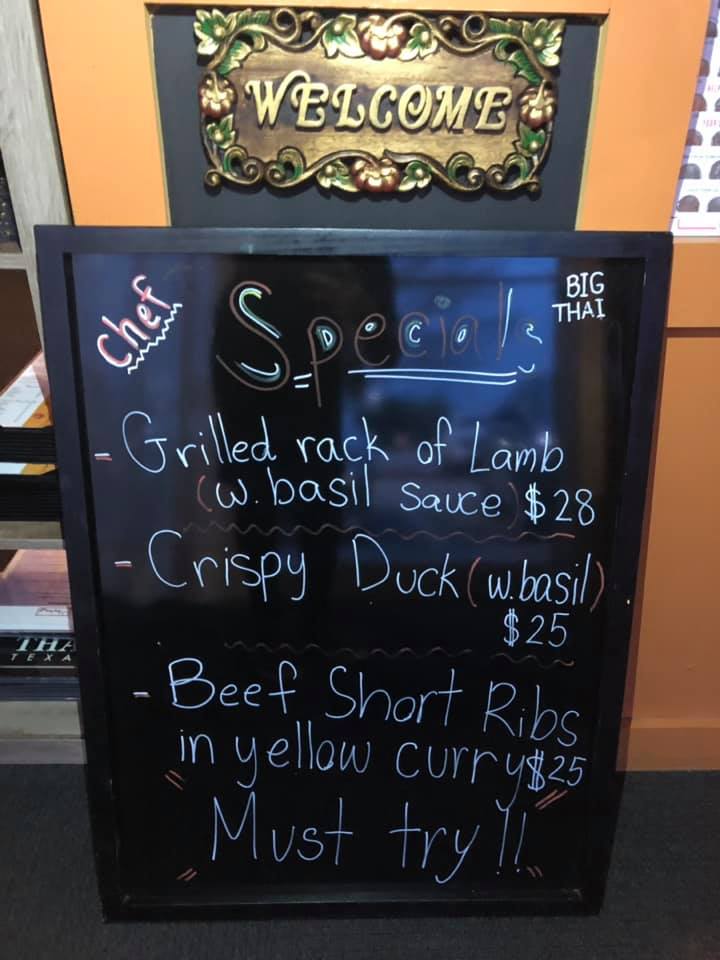 WELCOME
Chef
Specials
BIG
THAI
- Grilled rack of Lamb
(w. basil sauce) $28
- Crispy Duck (w.basil)
$25
- Beef Short Ribs
in yellow curry $25
"Must try!!"
THA
TEXA